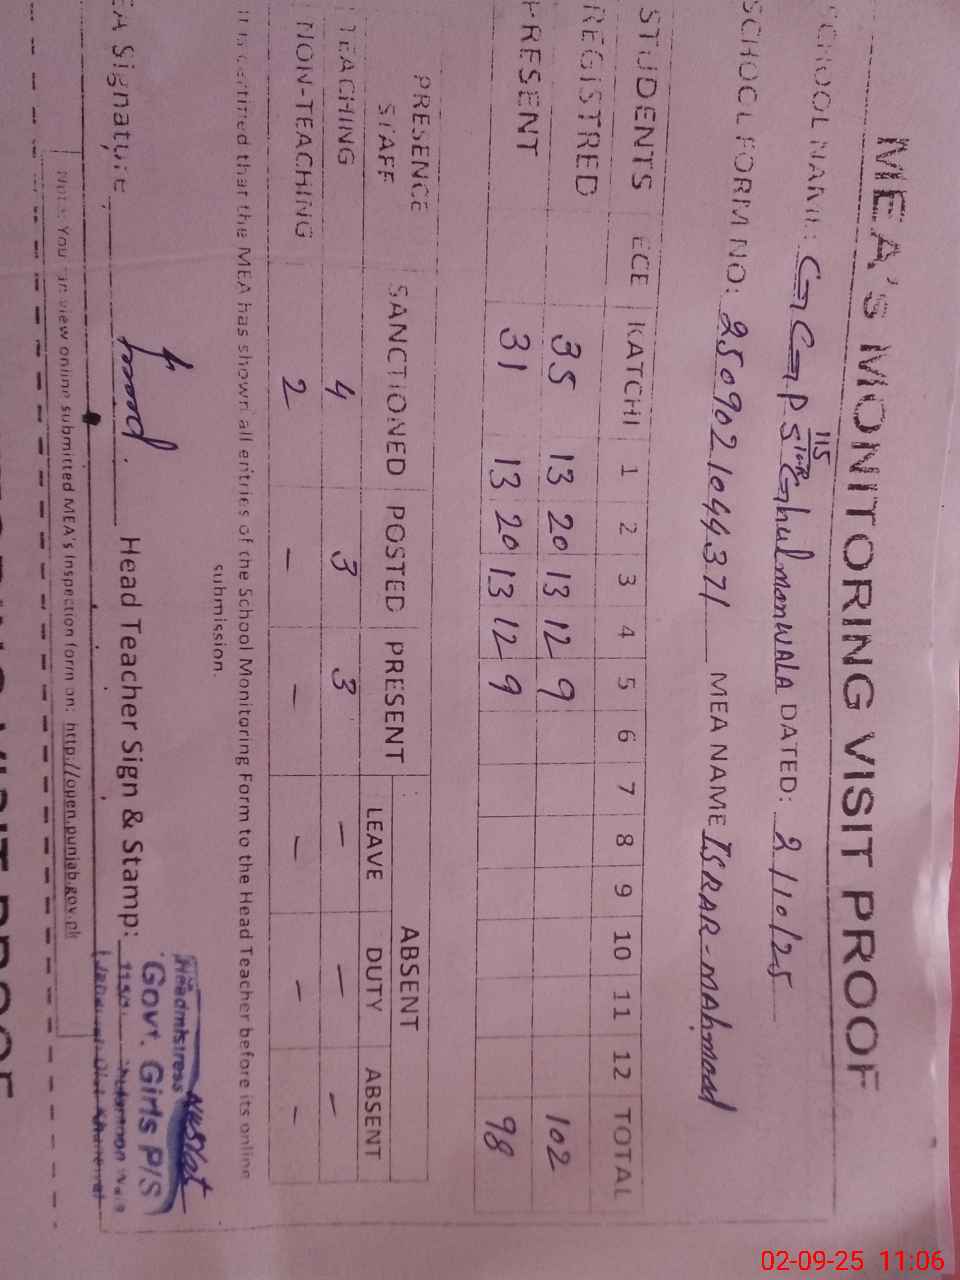 MEA'S MONITORING VISIT PROOF
SCHOOL NAME: GGPS 115 10R Ghulmonwala DATED: 2/10/25
SCHOOL FORM NO: 2509021044371 MEA NAME ISRAR-MAhmood
STUDENTS ECE KATCHI 1 2 3 4 5 6 7 8 9 10 11 12 TOTAL
REGISTRED 35 13 20 13 12 9 102
PRESENT 31 13 20 13 12 9 98
PRESENCE STAFF SANCTIONED POSTED PRESENT ABSENT
LEAVE DUTY ABSENT
TEACHING 4 3 3 - - -
NON-TEACHING 2 - - - - -
It is certified that the MEA has shown all entries of the School Monitoring Form to the Head Teacher before its online
submission.
EA Signature Head Teacher Sign & Stamp:
Headmistress
Govt. Girls P/S
Note: You can view online submitted MEA's Inspection form on: http://open.punjab.gov.pk
02-09-25 11:06